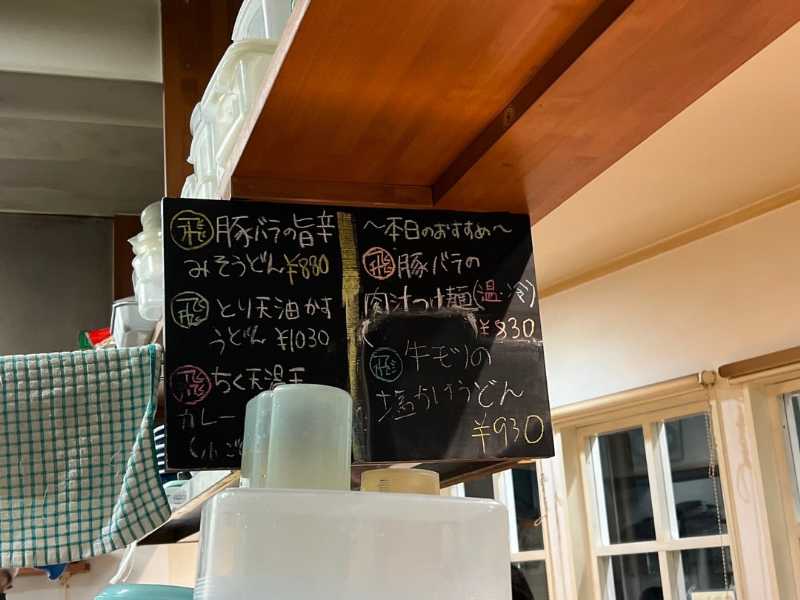 飛 豚バラの旨辛
みそうどん ¥880
飛 とり天油かす
うどん ¥1030
飛 ちく天温玉
カレー
(小ご
〜本日のおすすめ〜
飛 豚バラの
肉汁つけ麺(温・冷)
¥830
飛 牛モツの
塩かけうどん
¥930